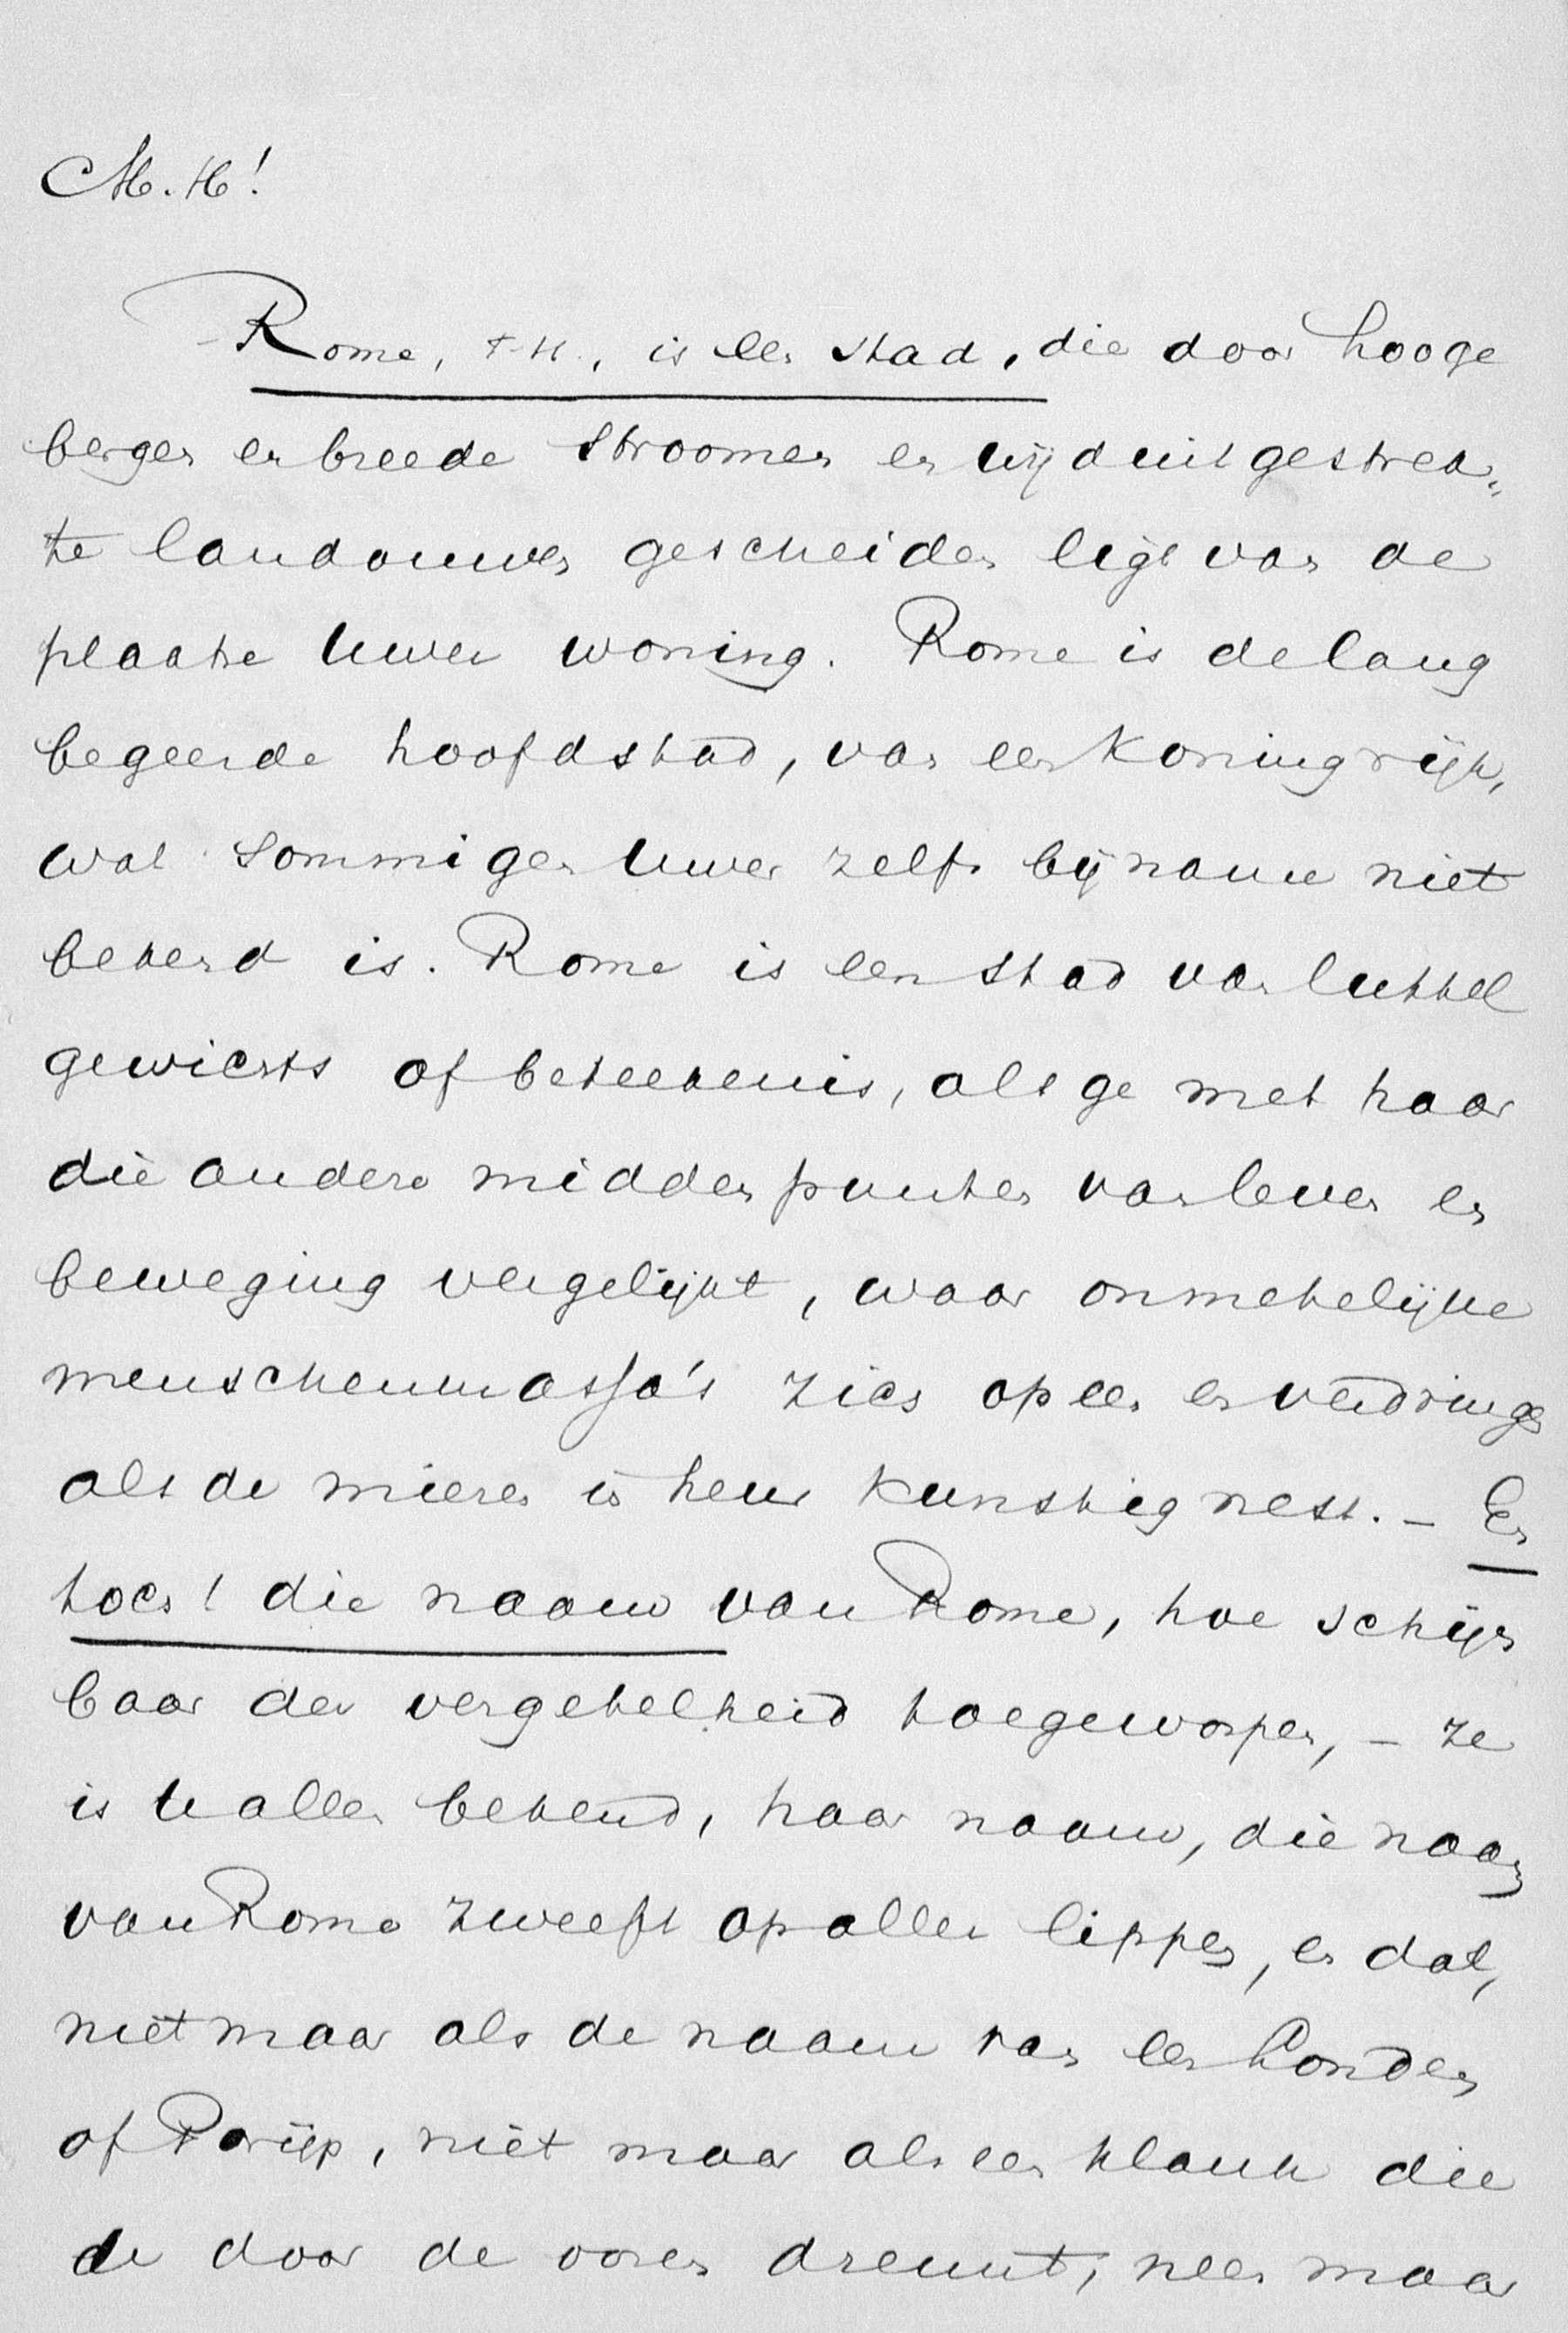 M.H!
Rome, T.H., is een stad, die door hooge
bergen en breede stroomen en wijd uitgestrek„
te landouwen gescheiden ligt van de
plaatse Uwer woning. Rome is de lang
begeerde hoofdstad, van een Koningrijk,
wat sommigen Uwer zelfs bij naam niet
bekend is. Rome is een stad van luttel
gewichts of beteekenis, als ge met haar
die andere middenpunten van leven en
beweging vergelijkt, waar onmetelijke
menschenmassa's zich opeen en verdringen
als de mieren in heur kunstig nest. – En
toch! die naam van Rome, hoe schijn
baar der vergetelheid toegeworpen, – ze
is U allen bekend, haar naam, die naam
van Rome zweeft op aller lippen, en dat,
niet maar als de naam van een Londen
of Parijs, niet maar als een klank die
de door de ooren dreunt, neen maar